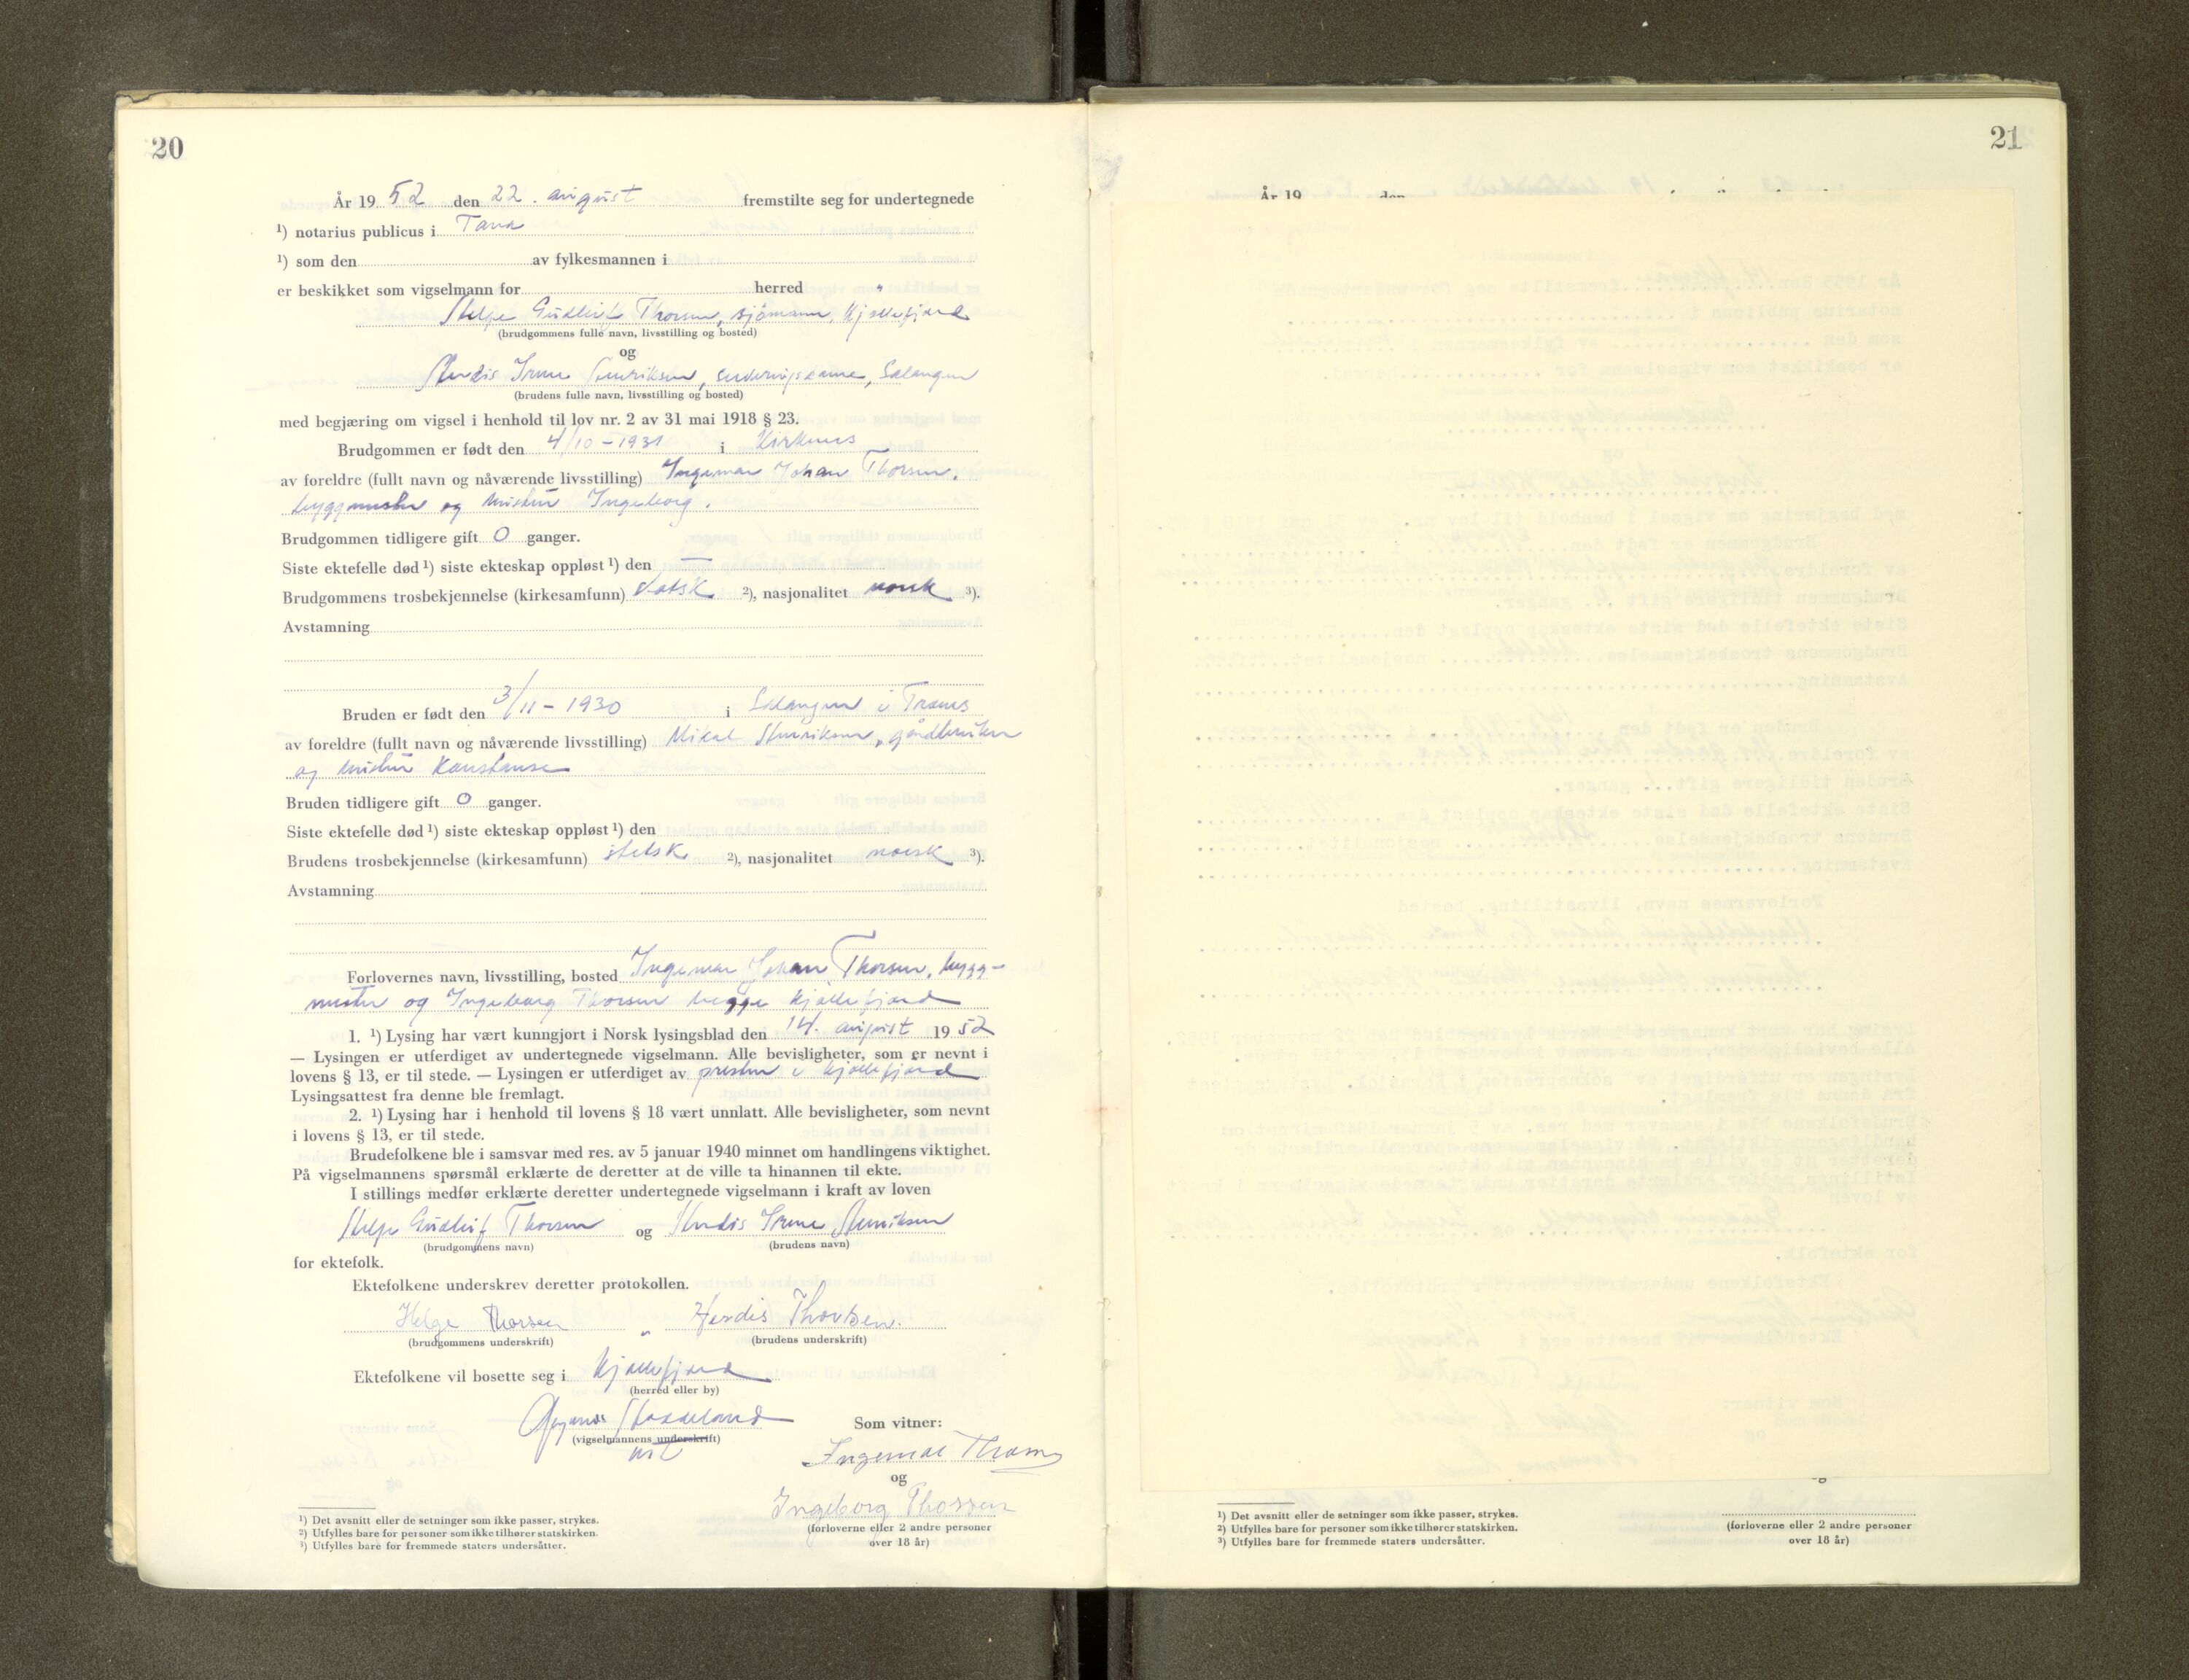 20
År 19 52 den 22. august fremstilte seg for undertegnede
¹) notarius publicus i Tana
¹) som den av fylkesmannen i
er beskikket som vigselmann for herred
Helge Gudleif Thorsen, sjömann, Kjøllefjord
(brudgommens fulle navn, livsstilling og bosted)
og
Herdis Irene Henriksen, serveringsdame, Salangen
(brudens fulle navn, livsstilling og bosted)
med begjæring om vigsel i henhold til lov nr. 2 av 31 mai 1918 § 23.
Brudgommen er født den 4/10-1931 i Kirkenes
av foreldre (fullt navn og nåværende livsstilling) Ingemar Johan Thorsen,
byggmester og hustru Ingeborg.
Brudgommen tidligere gift 0 ganger.
Siste ektefelle død ¹) siste ekteskap oppløst ¹) den —
Brudgommens trosbekjennelse (kirkesamfunn) statsk. ²), nasjonalitet norsk ³).
Avstamning
Bruden er født den 3/11-1930 i Salangen i Troms
av foreldre (fullt navn og nåværende livsstilling) Mikal Henriksen, gårdbruker
og hustru Konstanse
Bruden tidligere gift 0 ganger.
Siste ektefelle død ¹) siste ekteskap oppløst ¹) den
Brudens trosbekjennelse (kirkesamfunn) statsk. ²), nasjonalitet norsk ³).
Avstamning
Forlovernes navn, livsstilling, bosted Ingemar Johan Thorsen, bygg-
mester og Ingeborg Thorsen begge Kjøllefjord
1. ¹) Lysing har vært kunngjort i Norsk lysingsblad den 14. august 19 52
— Lysingen er utferdiget av undertegnede vigselmann. Alle bevisligheter, som er nevnt i
lovens § 13, er til stede. — Lysingen er utferdiget av presten i Kjøllefjord
Lysingsattest fra denne ble fremlagt.
2. ¹) Lysing har i henhold til lovens § 18 vært unnlatt. Alle bevisligheter, som nevnt
i lovens § 13, er til stede.
Brudefolkene ble i samsvar med res. av 5 januar 1940 minnet om handlingens viktighet.
På vigselmannens spørsmål erklærte de deretter at de ville ta hinannen til ekte.
I stillings medfør erklærte deretter undertegnede vigselmann i kraft av loven
Helge Gudleif Thorsen og Herdis Irene Henriksen
(brudgommens navn) (brudens navn)
for ektefolk.
Ektefolkene underskrev deretter protokollen.
Helge Thorsen Herdis Thorsen.
(brudgommens underskrift) (brudens underskrift)
Ektefolkene vil bosette seg i Kjøllefjord
(herred eller by)
(vigselmannens underskrift)
Som vitner:
Ingemar Thorsen
og
Ingeborg Thorsen
(forloverne eller 2 andre personer
over 18 år)
¹) Det avsnitt eller de setninger som ikke passer, strykes.
²) Utfylles bare for personer som ikke tilhører statskirken.
³) Utfylles bare for fremmede staters undersåtter.
21
År 19 den
¹) Det avsnitt eller de setninger som ikke passer, strykes.
²) Utfylles bare for personer som ikke tilhører statskirken.
³) Utfylles bare for fremmede staters undersåtter.
(forloverne eller 2 andre personer
over 18 år)